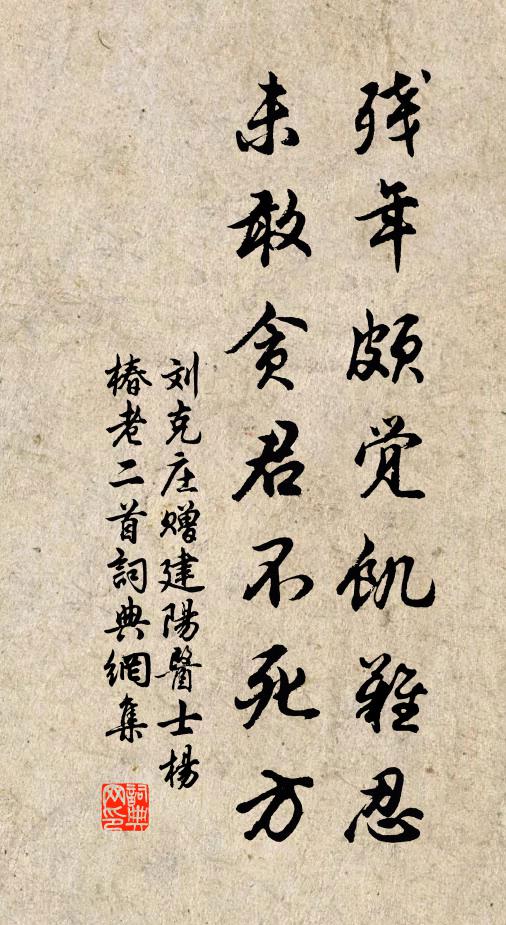 残年頗觉飢難忍
未敢贪君不死方
刘克庄赠建陽醫士楊
椿老二首詞典網集
詞典
网印